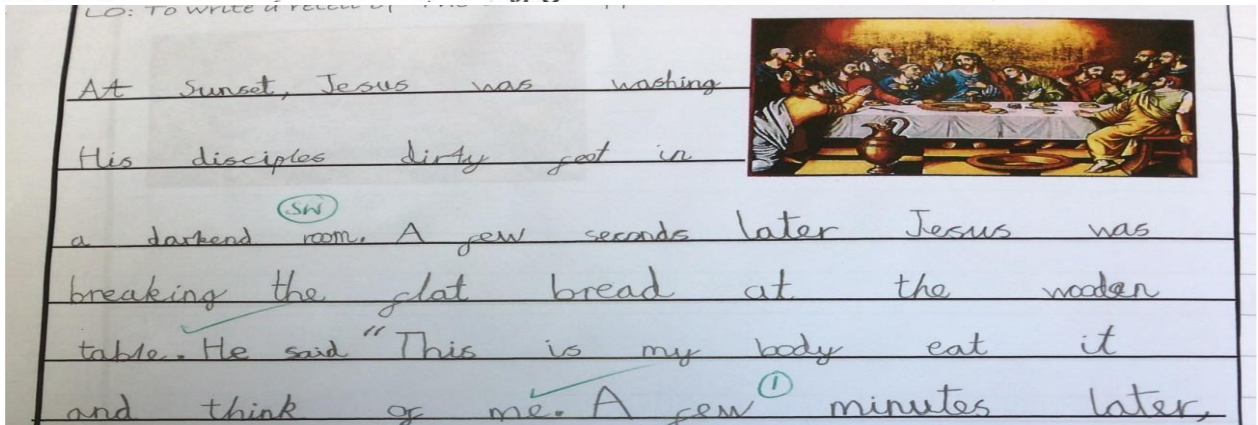 LO: To write a retell of The
At Sunset, Jesus was washing
His disciples dirty feet in
SW
a darkend room. A few seconds later Jesus was
breaking the flat bread at the wooden
table. He said "This is my body eat it
1
and think of me. A few minutes later,